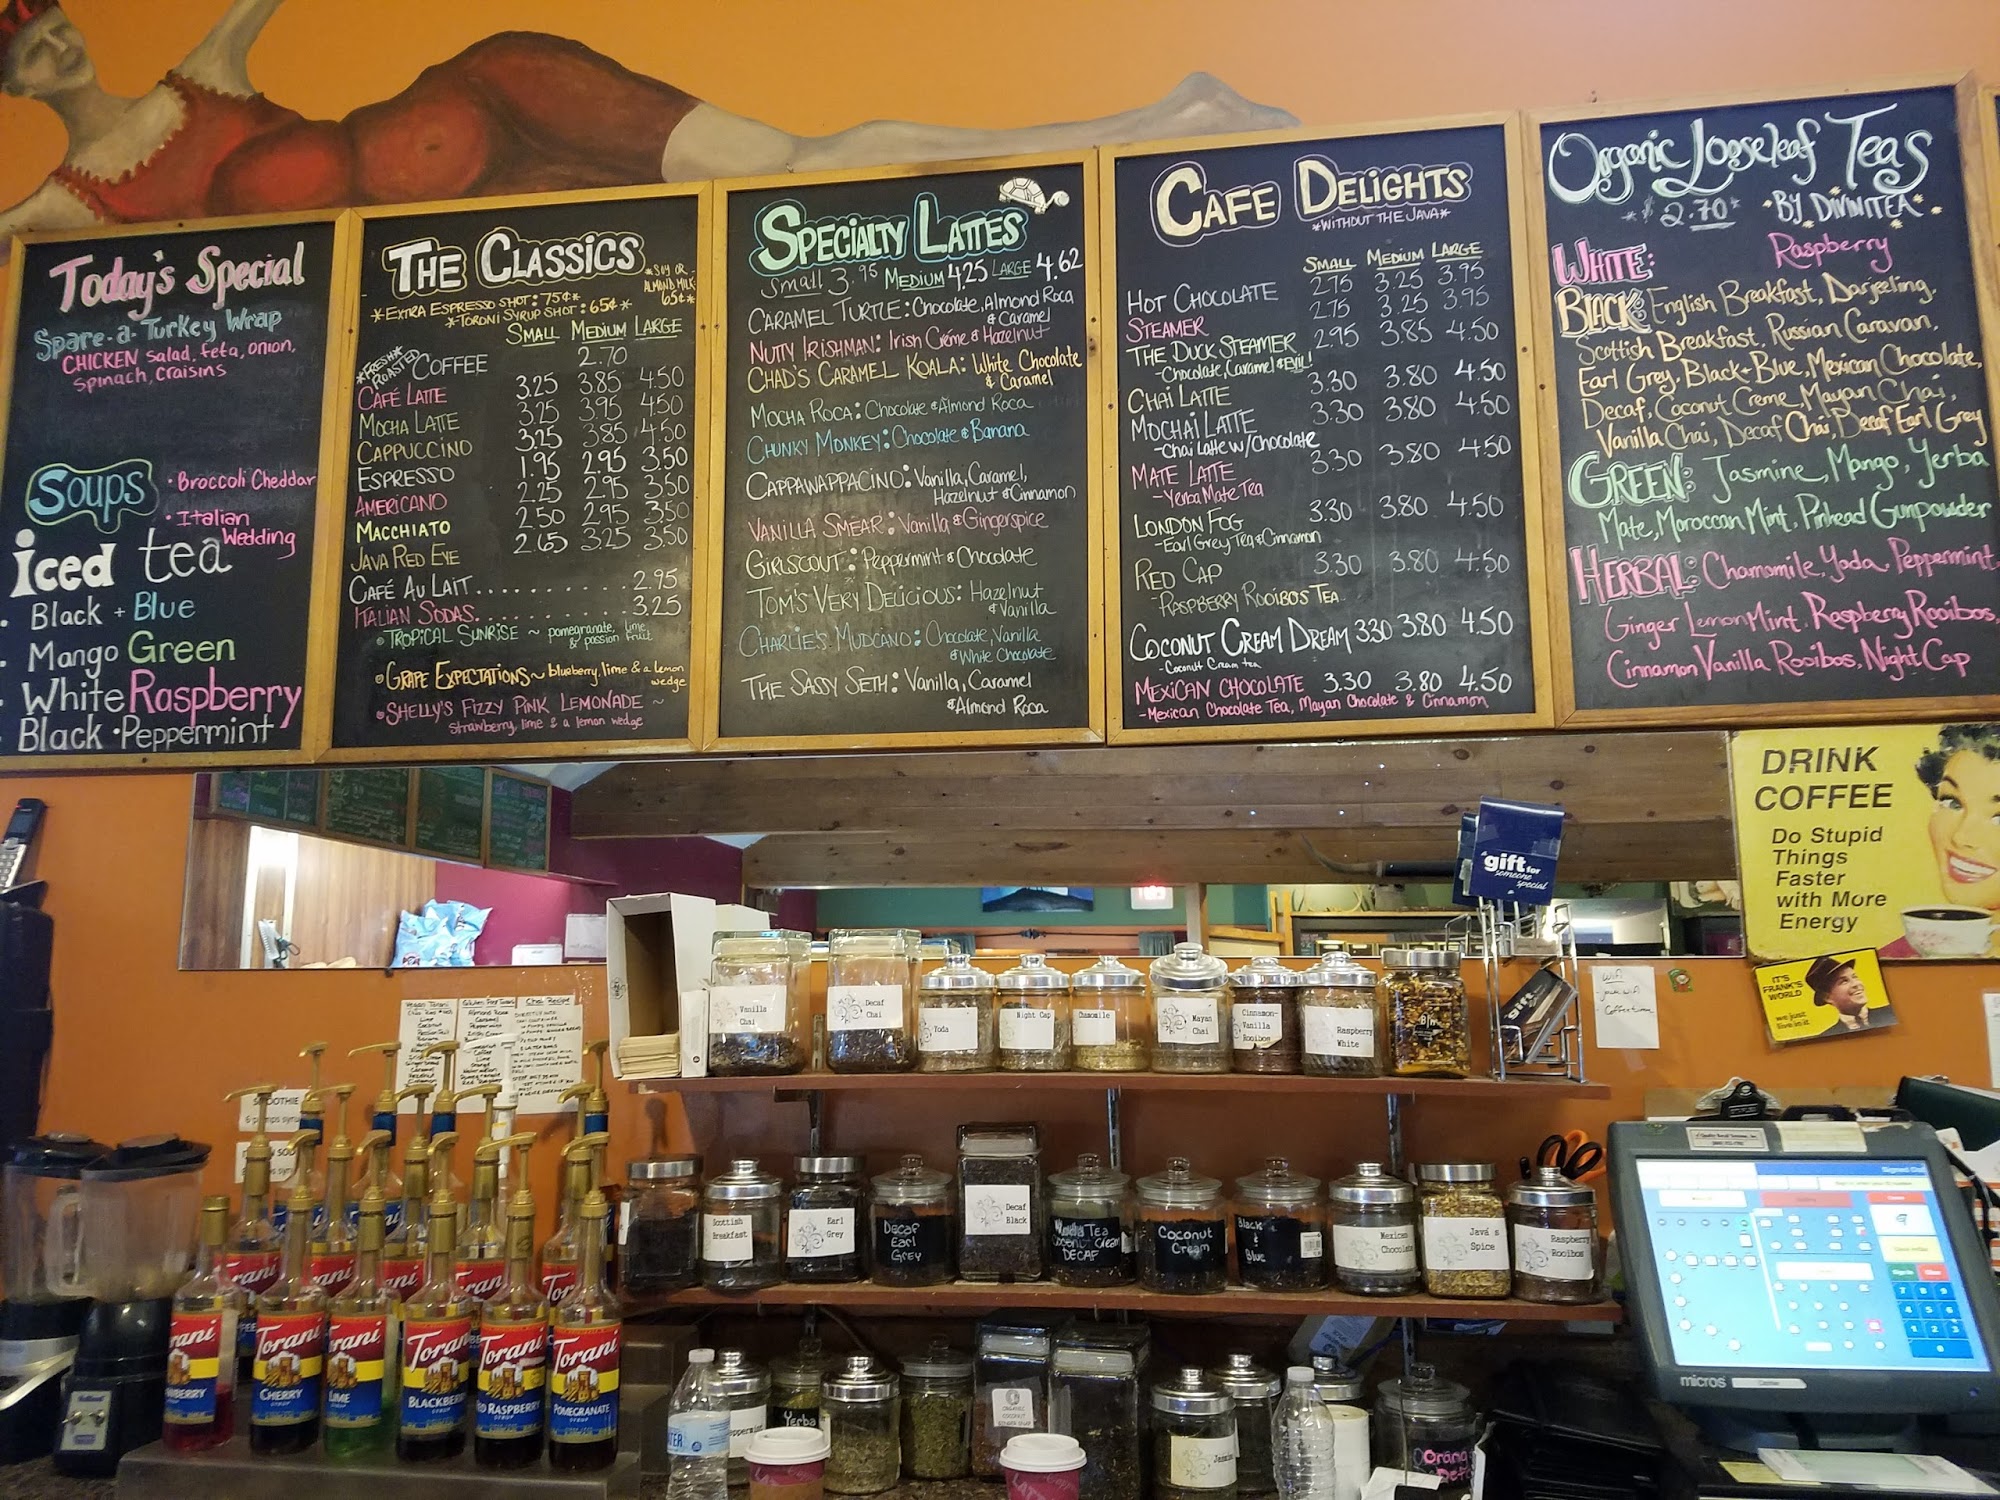 Today's Special
Spare-a-Turkey Wrap
CHICKEN salad, feta, onion,
spinach, craisins
Soups
• Broccoli Cheddar
• Italian
Wedding
iced tea
• Black + Blue
• Mango Green
• White Raspberry
Black • Peppermint
THE CLASSICS
*SOY OR
ALMOND MILK:
65¢*
*EXTRA ESPRESSO SHOT: 75¢*
*TORONI SYRUP SHOT: 65¢*
SMALL MEDIUM LARGE
*FRESH*
ROASTED
COFFEE 2.70
CAFÉ LATTE 3.25 3.85 4.50
MOCHA LATTE 3.25 3.95 4.50
CAPPUCCINO 3.25 3.85 4.50
ESPRESSO 1.95 2.95 3.50
AMERICANO 2.25 2.95 3.50
MACCHIATO 2.50 2.95 3.50
JAVA RED EYE 2.65 3.25 3.50
CAFÉ AU LAIT . . . . . . . . . . 2.95
ITALIAN SODAS. . . . . . . . . . 3.25
• TROPICAL SUNRISE ~ pomegranate, lime
& passion fruit
• GRAPE EXPECTATIONS ~ blueberry, lime & a lemon
wedge
• SHELLY'S FIZZY PINK LEMONADE ~
strawberry, lime & a lemon wedge
SPECIALTY LATTES
Small 3.95 MEDIUM 4.25 LARGE 4.62
CARAMEL TURTLE: Chocolate, Almond Roca
& Caramel
NUTTY IRISHMAN: Irish Créme & Hazelnut
CHAD'S CARAMEL KOALA: White Chocolate
& Caramel
MOCHA ROCA: Chocolate & Almond Roca
CHUNKY MONKEY: Chocolate & Banana
CAPPAWAPPACINO: Vanilla, Caramel,
Hazelnut & Cinnamon
VANILLA SMEAR: Vanilla & Gingerspice
GIRLSCOUT: Peppermint & Chocolate
TOM'S VERY DELICIOUS: Hazelnut
& Vanilla
CHARLIE'S MUDCANO: Chocolate, Vanilla
& White Chocolate
THE SASSY SETH: Vanilla, Caramel
& Almond Roca
CAFE DELIGHTS
*WITHOUT THE JAVA*
SMALL MEDIUM LARGE
HOT CHOCOLATE 2.75 3.25 3.95
STEAMER 2.75 3.25 3.95
THE DUCK STEAMER 2.95 3.85 4.50
-Chocolate, Caramel & EVIL!
CHAI LATTE 3.30 3.80 4.50
MOCHAI LATTE 3.30 3.80 4.50
-Chai Latte w/chocolate
MATE LATTE 3.30 3.80 4.50
-Yerba Mate Tea
LONDON FOG 3.30 3.80 4.50
-Earl Grey Tea & Cinnamon
RED CAP 3.30 3.80 4.50
-RASPBERRY ROOIBOS TEA
COCONUT CREAM DREAM 3.30 3.80 4.50
-Coconut Cream tea
MEXICAN CHOCOLATE 3.30 3.80 4.50
-Mexican Chocolate Tea, Mayan Chocolate & Cinnamon
Organic Looseleaf Teas
*$2.70* *BY DIVINITEA*
WHITE: Raspberry
BLACK: English Breakfast, Darjeeling,
Scottish Breakfast, Russian Caravan,
Earl Grey, Black + Blue, Mexican Chocolate,
Decaf, Coconut Creme, Mayan Chai,
Vanilla Chai, Decaf Chai, Decaf Earl Grey
GREEN: Jasmine, Mango, Yerba
Mate, Moroccan Mint, Pinhead Gunpowder
HERBAL: Chamomile, Yoda, Peppermint,
Ginger Lemon Mint, Raspberry Rooibos,
Cinnamon Vanilla Rooibos, Night Cap
DRINK
COFFEE
Do Stupid
Things
Faster
with More
Energy
a gift for
someone
special
IT'S
FRANK'S
WORLD
we just
live in it
gift
Wifi
Vegan Torani
Gluten Free Torani
Chai Recipe
SMOOTHIE
Vanilla
Chai
Decaf
Chai
Yoda
Night Cap
Chamomile
Mayan
Chai
Cinnamon-
Vanilla
Rooibos
Raspberry
White
Scottish
Breakfast
Earl
Grey
Decaf
Earl
Grey
Decaf
Black
Coconut Cream
DECAF
Coconut
Cream
Black
&
Blue
Mexican
Chocolate
Java's
Spice
Raspberry
Rooibos
Torani
Torani
Torani
Torani
Torani
Torani
CHERRY
SYRUP
LIME
SYRUP
BLACKBERRY
SYRUP
RED RASPBERRY
SYRUP
POMEGRANATE
SYRUP
Peppermint
Yerba
Jasmine
micros